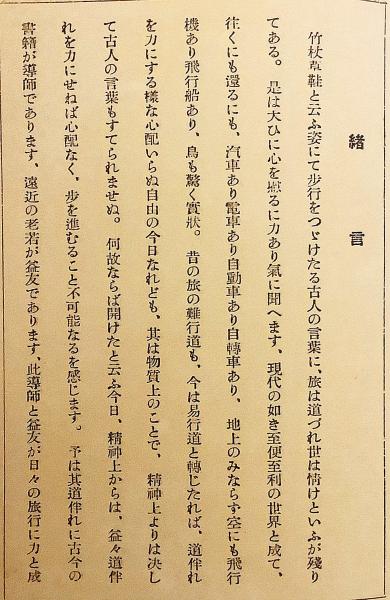 緒言
竹杖草鞋と云ふ姿にて步行をつゞけたる古人の言葉に、旅は道づれ世は情けといふが殘り
てある。是は大ひに心を慰るに力あり氣に聞へます、現代の如き至便至利の世界と成て、
徃くにも還るにも、汽車あり電車あり自動車あり自轉車あり、地上のみならず空にも飛行
機あり飛行船あり、鳥も驚く實狀。昔の旅の難行道も、今は易行道と轉じたれば、道伴れ
を力にする樣な心配いらぬ自由の今日なれども、其は物質上のことで、精神上よりは决し
て古人の言葉もすてられませぬ。何故ならば開けたと云ふ今日、精神上からは、益々道伴
れを力にせねば心配なく、步を進むること不可能なるを感じます。予は其道伴れに古今の
書籍が導師であります、遠近の老若が益友であります、此導師と益友が日々の旅行に力と成